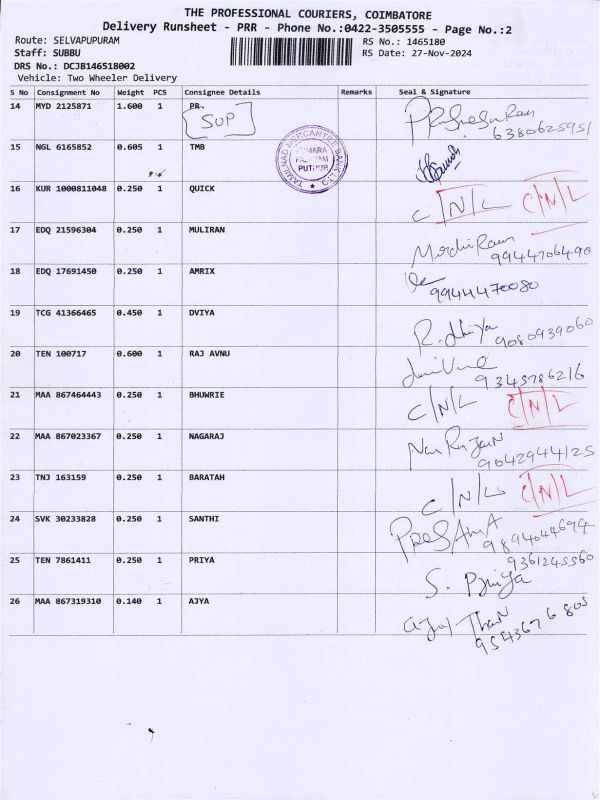 THE PROFESSIONAL COURIERS, COIMBATORE
Delivery Runsheet - PRR - Phone No.:0422-3505555 - Page No.:2
Route: SELVAPUPURAM RS No.: 1465180
Staff: SUBBU RS Date: 27-Nov-2024
DRS No.: DCJB146518002
Vehicle: Two Wheeler Delivery
S No Consignment No Weight PCS Consignee Details Remarks Seal & Signature
14 MYD 2125871 1.600 1 PR.
SUP
6380625951
15 NGL 6165852 0.605 1 TMB
TAMILNAD MERCANTILE BANK LTD
16 KUR 1000811048 0.250 1 QUICK C/N/L C/N/L
17 EDQ 21596304 0.250 1 MULIRAN
9944706490
18 EDQ 17691450 0.250 1 AMRIX
9944470080
19 TCG 41366465 0.450 1 DVIYA
9080939060
20 TEN 100717 0.600 1 RAJ AVNU
9345786216
21 MAA 867464443 0.250 1 BHUWRIE C/N/L C/N/L
22 MAA 867023367 0.250 1 NAGARAJ
9042944125
23 TNJ 163159 0.250 1 BARATAH C/N/L C/N/L
24 SVK 30233828 0.250 1 SANTHI
9894044694
25 TEN 7861411 0.250 1 PRIYA 9361245560
S. Priya
26 MAA 867319310 0.140 1 AJYA